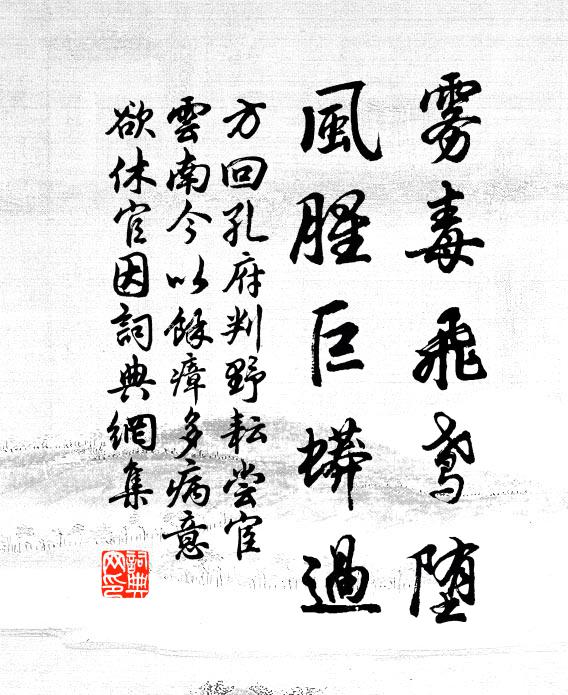 雾毒飛鸢堕
風腥巨蟒過
方回孔府判野耘尝宦
雲南今以餘瘴多病意
欲休官因詞典網集
詞典网印